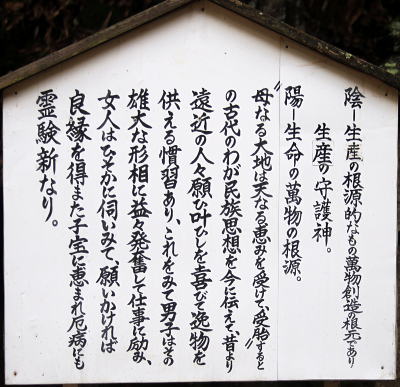 陰ー生産の根源的なもの萬物創造の根元であり
生産の守護神。
陽ー生命の萬物の根源。
〝母なる大地は天なる恵みを受けて、受胎〟すると
の古代のわが民族思想を今に伝えて、昔より
遠近の人々願ひ叶ひしを喜びて逸物を
供える慣習あり、これをみて男子はその
雄大な形相に益々発奮して仕事に励み、
女人はひそかに伺いみて、願いかければ
良縁を得また子宝に恵まれ厄病にも
霊験新なり。